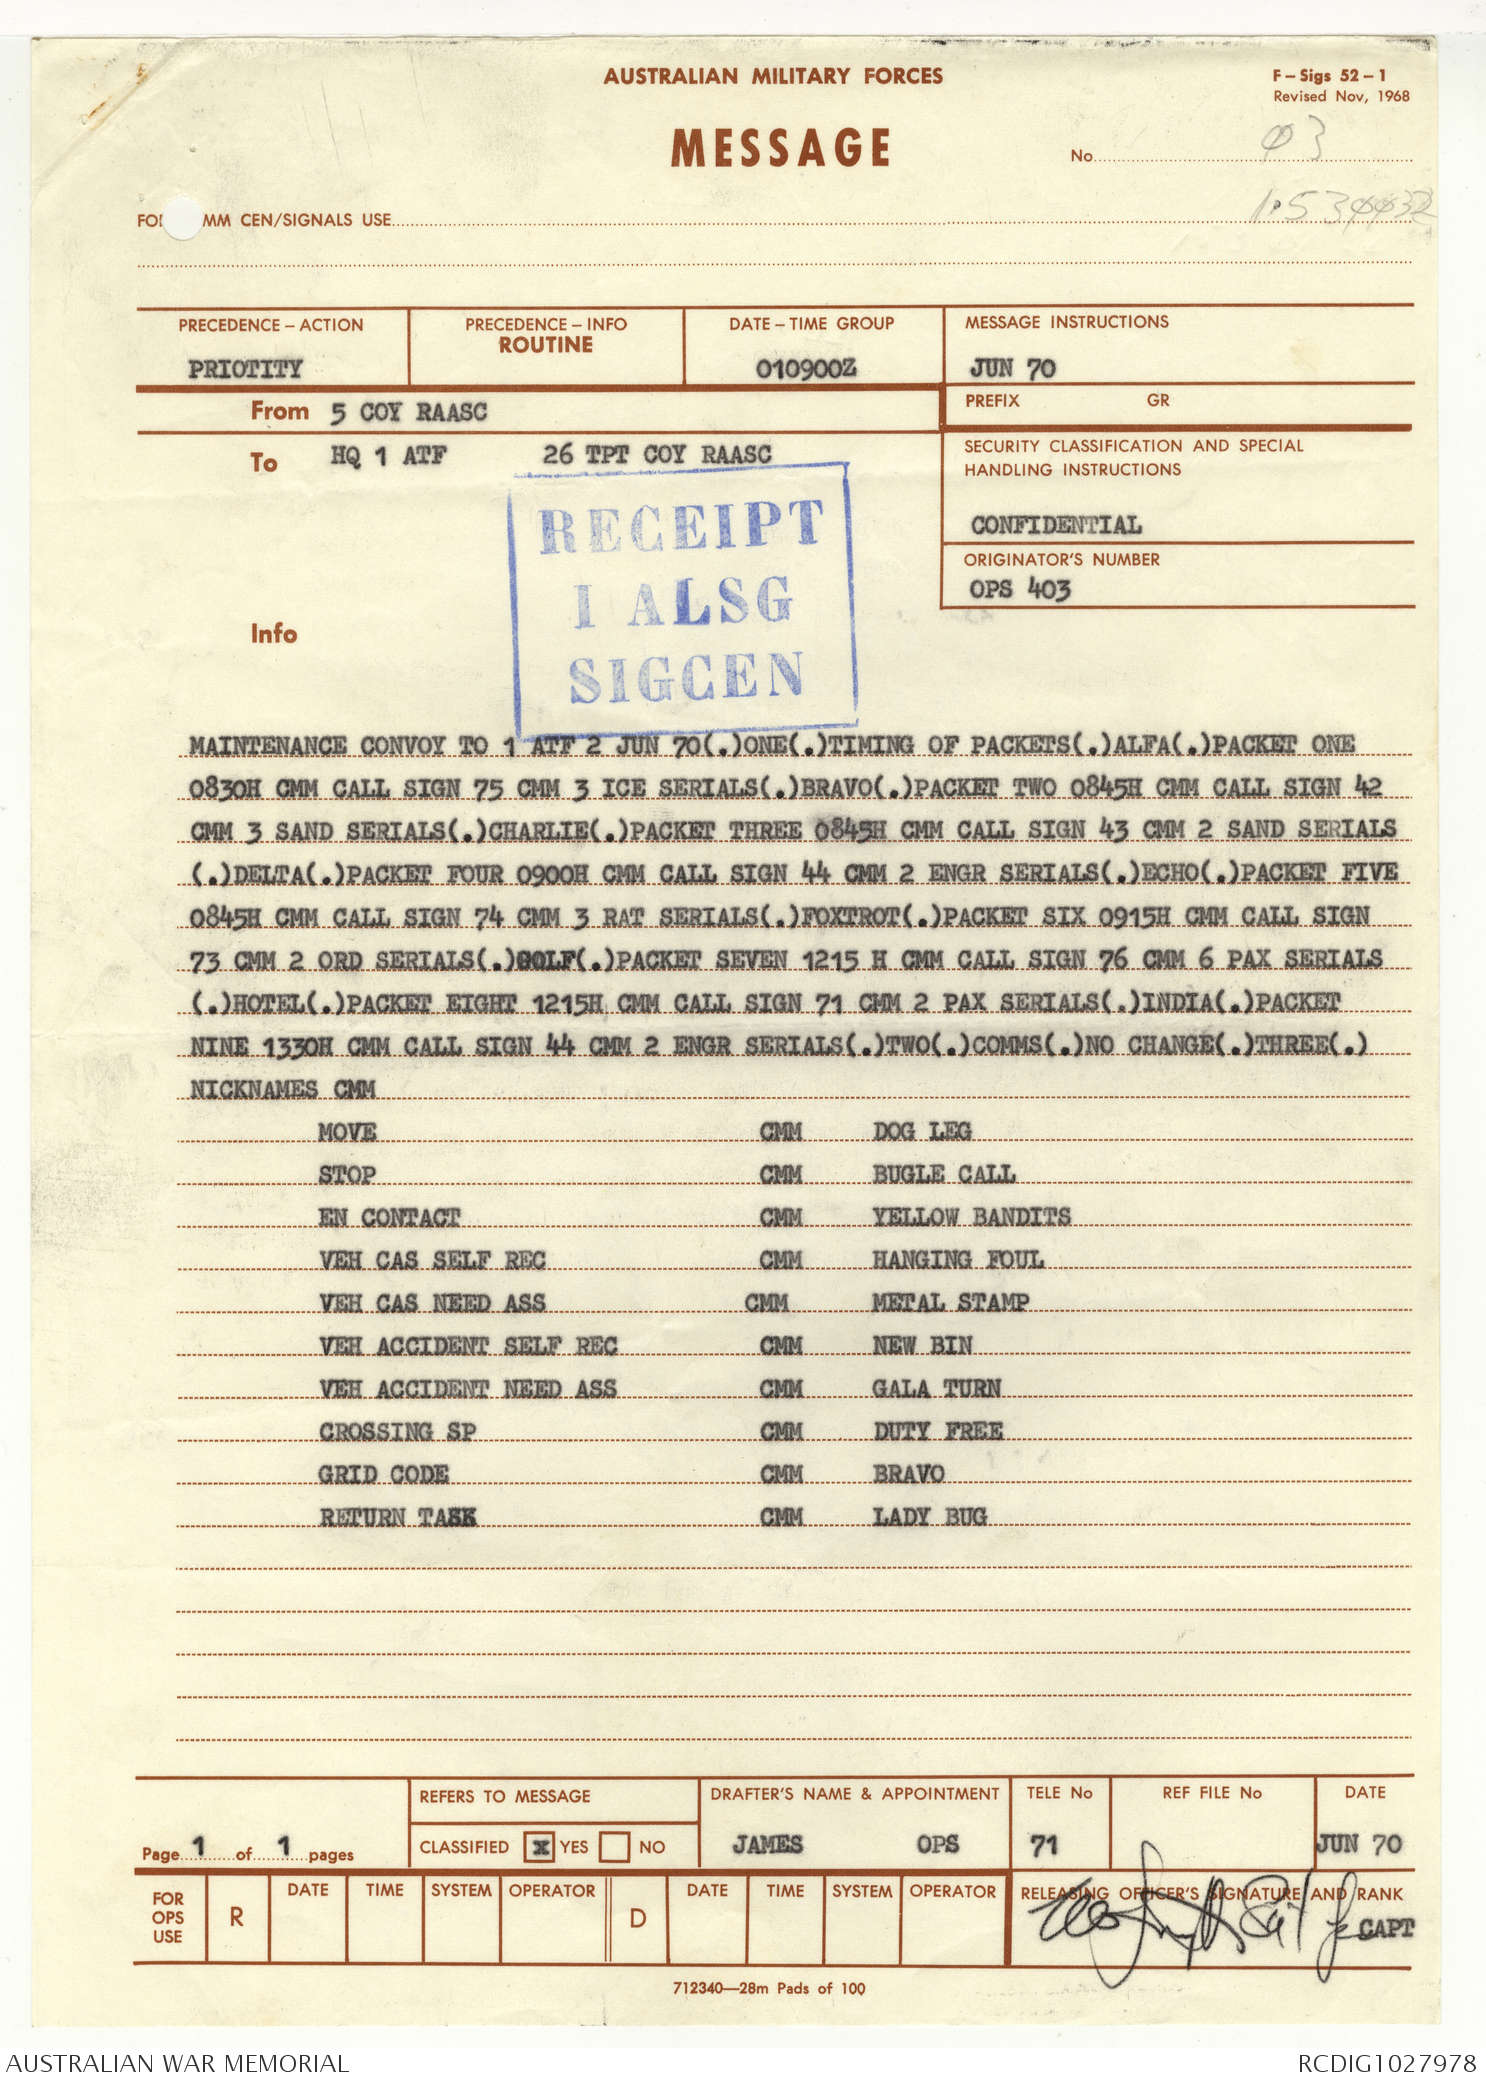 AUSTRALIAN MILITARY FORCES
F – Sigs 52 – 1
Revised Nov, 1968
MESSAGE
No. 03
FO MM CEN/SIGNALS USE
PRECEDENCE – ACTION
PRIOTITY
PRECEDENCE – INFO
ROUTINE
DATE – TIME GROUP
010900Z
MESSAGE INSTRUCTIONS
JUN 70
From 5 COY RAASC
PREFIX GR
To HQ 1 ATF 26 TPT COY RAASC
SECURITY CLASSIFICATION AND SPECIAL
HANDLING INSTRUCTIONS
CONFIDENTIAL
ORIGINATOR'S NUMBER
OPS 403
RECEIPT
I ALSG
SIGCEN
Info
MAINTENANCE CONVOY TO 1 ATF 2 JUN 70(.)ONE(.)TIMING OF PACKETS(.)ALFA(.)PACKET ONE
0830H CMM CALL SIGN 75 CMM 3 ICE SERIALS(.)BRAVO(.)PACKET TWO 0845H CMM CALL SIGN 42
CMM 3 SAND SERIALS(.)CHARLIE(.)PACKET THREE 0845H CMM CALL SIGN 43 CMM 2 SAND SERIALS
(.)DELTA(.)PACKET FOUR 0900H CMM CALL SIGN 44 CMM 2 ENGR SERIALS(.)ECHO(.)PACKET FIVE
0845H CMM CALL SIGN 74 CMM 3 RAT SERIALS(.)FOXTROT(.)PACKET SIX 0915H CMM CALL SIGN
73 CMM 2 ORD SERIALS(.)GOLF(.)PACKET SEVEN 1215 H CMM CALL SIGN 76 CMM 6 PAX SERIALS
(.)HOTEL(.)PACKET EIGHT 1215H CMM CALL SIGN 71 CMM 2 PAX SERIALS(.)INDIA(.)PACKET
NINE 1330H CMM CALL SIGN 44 CMM 2 ENGR SERIALS(.)TWO(.)COMMS(.)NO CHANGE(.)THREE(.)
NICKNAMES CMM
MOVE CMM DOG LEG
STOP CMM BUGLE CALL
EN CONTACT CMM YELLOW BANDITS
VEH CAS SELF REC CMM HANGING FOUL
VEH CAS NEED ASS CMM METAL STAMP
VEH ACCIDENT SELF REC CMM NEW BIN
VEH ACCIDENT NEED ASS CMM GALA TURN
CROSSING SP CMM DUTY FREE
GRID CODE CMM BRAVO
RETURN TASK CMM LADY BUG
Page 1 of 1 pages
REFERS TO MESSAGE
CLASSIFIED x YES NO
DRAFTER'S NAME & APPOINTMENT
JAMES OPS
TELE No
71
REF FILE No
DATE
JUN 70
FOR
OPS
USE
R
DATE TIME SYSTEM OPERATOR
D
DATE TIME SYSTEM OPERATOR
RELEASING OFFICER'S SIGNATURE AND RANK
CAPT
712340—28m Pads of 100
AUSTRALIAN WAR MEMORIAL
RCDIG1027978